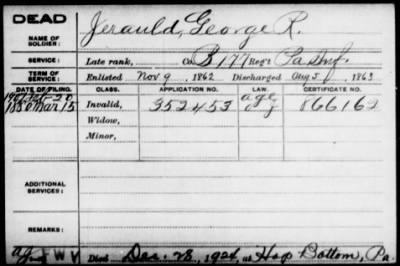 DEAD
NAME OF SOLDIER: Jerauld, George R.
SERVICE: Late rank, Co. B 177 Reg't Pa Inf.
TERM OF SERVICE: Enlisted Nov 9, 1862 Discharged Aug 5, 1863
DATE OF FILING. CLASS. APPLICATION NO. LAW. CERTIFICATE NO.
age
1880 Mar 15 Invalid, 352453 866162
Widow,
Minor,
ADDITIONAL SERVICES:
REMARKS:
Died Dec. 28, 1924, at Hop Bottom, Pa.